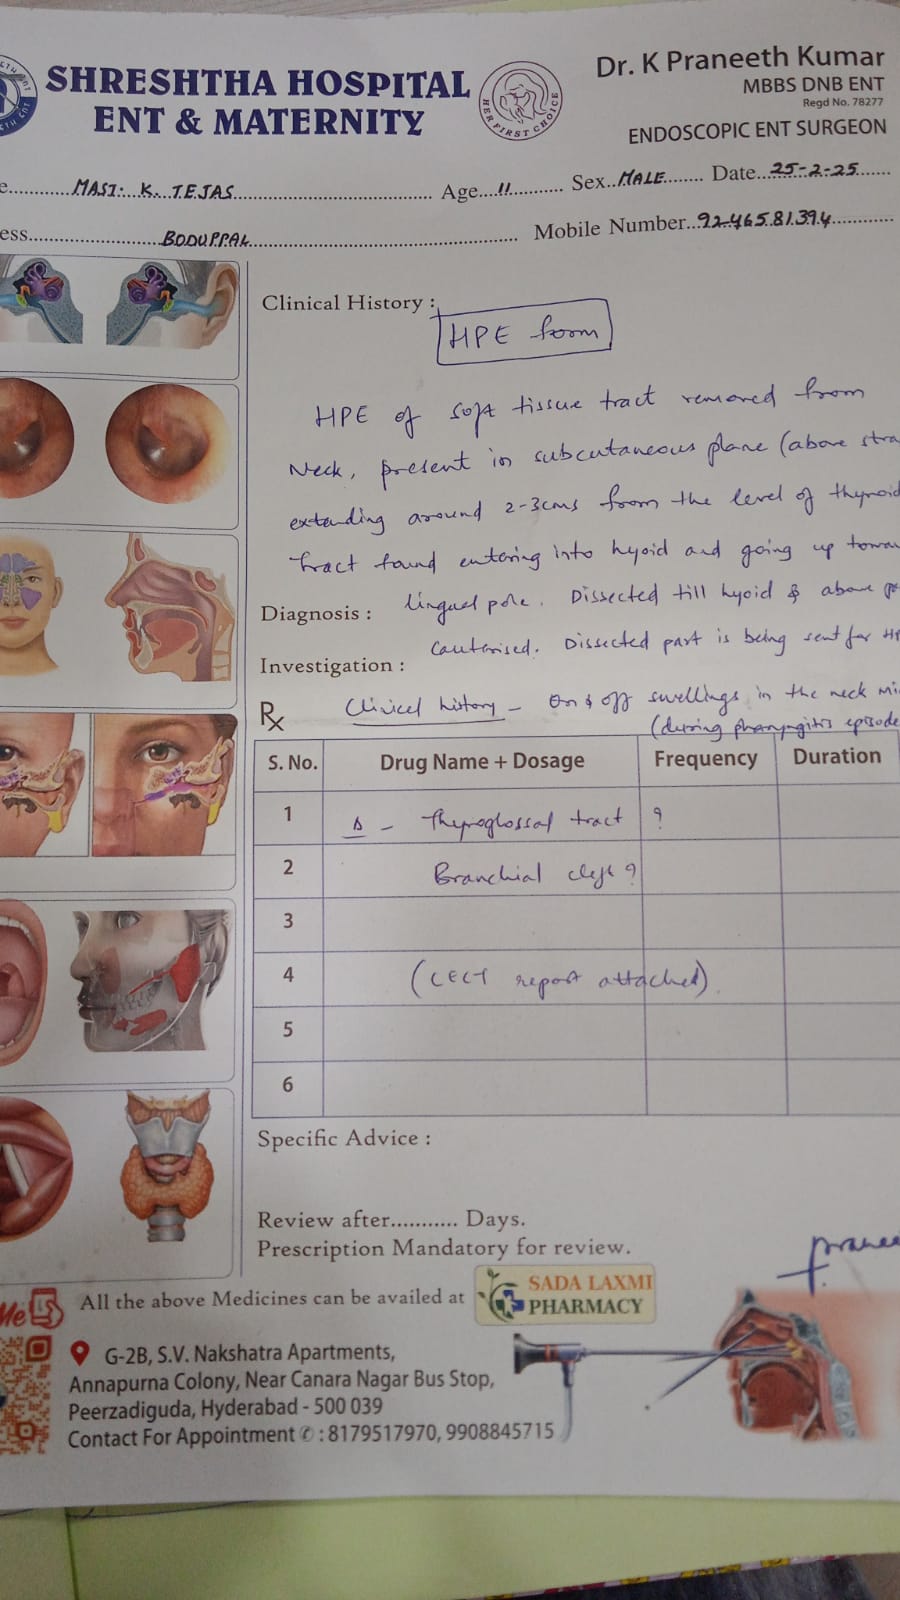 SHRESHTHA HOSPITAL
ENT & MATERNITY
HER FIRST CHOICE
Dr. K Praneeth Kumar
MBBS DNB ENT
Regd No. 78277
ENDOSCOPIC ENT SURGEON
e............MAST. K. TEJAS.................... Age...11........... Sex..MALE....... Date..25-2-25......
ess....................BODUPPAL........................................ Mobile Number..9246581394...........
Clinical History :
HPE form
HPE of soft tissue tract removed from
Neck, present in subcutaneous plane (above stra
extending around 2-3cms from the level of thyroid
Tract found entering into hyoid and going up towa
lingual pole. Dissected till hyoid & above
Diagnosis :
cauterised. Dissected part is being sent for HP
Investigation :
Rx
Clinical history - On & off swellings in the neck mi
(during pharyngitis episode
S. No. Drug Name + Dosage Frequency Duration
1 Δ - Thyroglossal tract ?
2 Branchial cleft ?
3
4 (CECT report attached)
5
6
Specific Advice :
Review after........... Days.
Prescription Mandatory for review.
Me
All the above Medicines can be availed at
SADA LAXMI
PHARMACY
G-2B, S.V. Nakshatra Apartments,
Annapurna Colony, Near Canara Nagar Bus Stop,
Peerzadiguda, Hyderabad - 500 039
Contact For Appointment ✆ : 8179517970, 9908845715